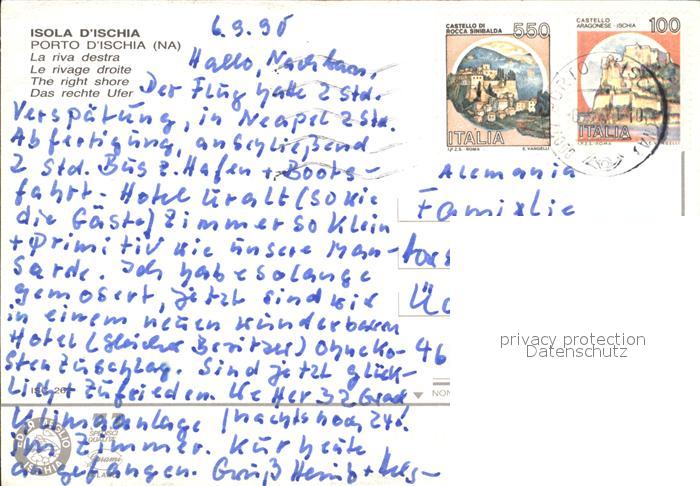 ISOLA D'ISCHIA
PORTO D'ISCHIA (NA)
La riva destra
Le rivage droite
The right shore
Das rechte Ufer
6.9.90
CASTELLO DI
ROCCA SINIBALDA
550
ITALIA
I.P.Z.S. - ROMA
E. VANGELLI
CASTELLO
ARAGONESE - ISCHIA
100
ITALIA
I.P.Z.S. - ROMA
Hallo, Nachbarn,
Der Flug hatte 2 Std.
Verspätung, in Neapel 2 Std.
Abfertigung, anschließend
2 Std. Bus z. Hafen + Boots-
fahrt. Hotel uralt (sowie
die Gäste) Zimmer so klein
+ Primitiv wie unsere Man-
sarde. Ich habe solange
gemosert, jetzt sind wir
in einem neuen wunderbaren
Hotel (Gleicher Besitzer) ohne Ko-
stenzuschlag. Sind jetzt glück-
lich + zufrieden. Wetter 32 Grad
Klimaanlage (nachts noch 24°)
im Zimmer. Kur heute
angefangen. Gruß
Alemania
Familie
46
privacy protection
Datenschutz